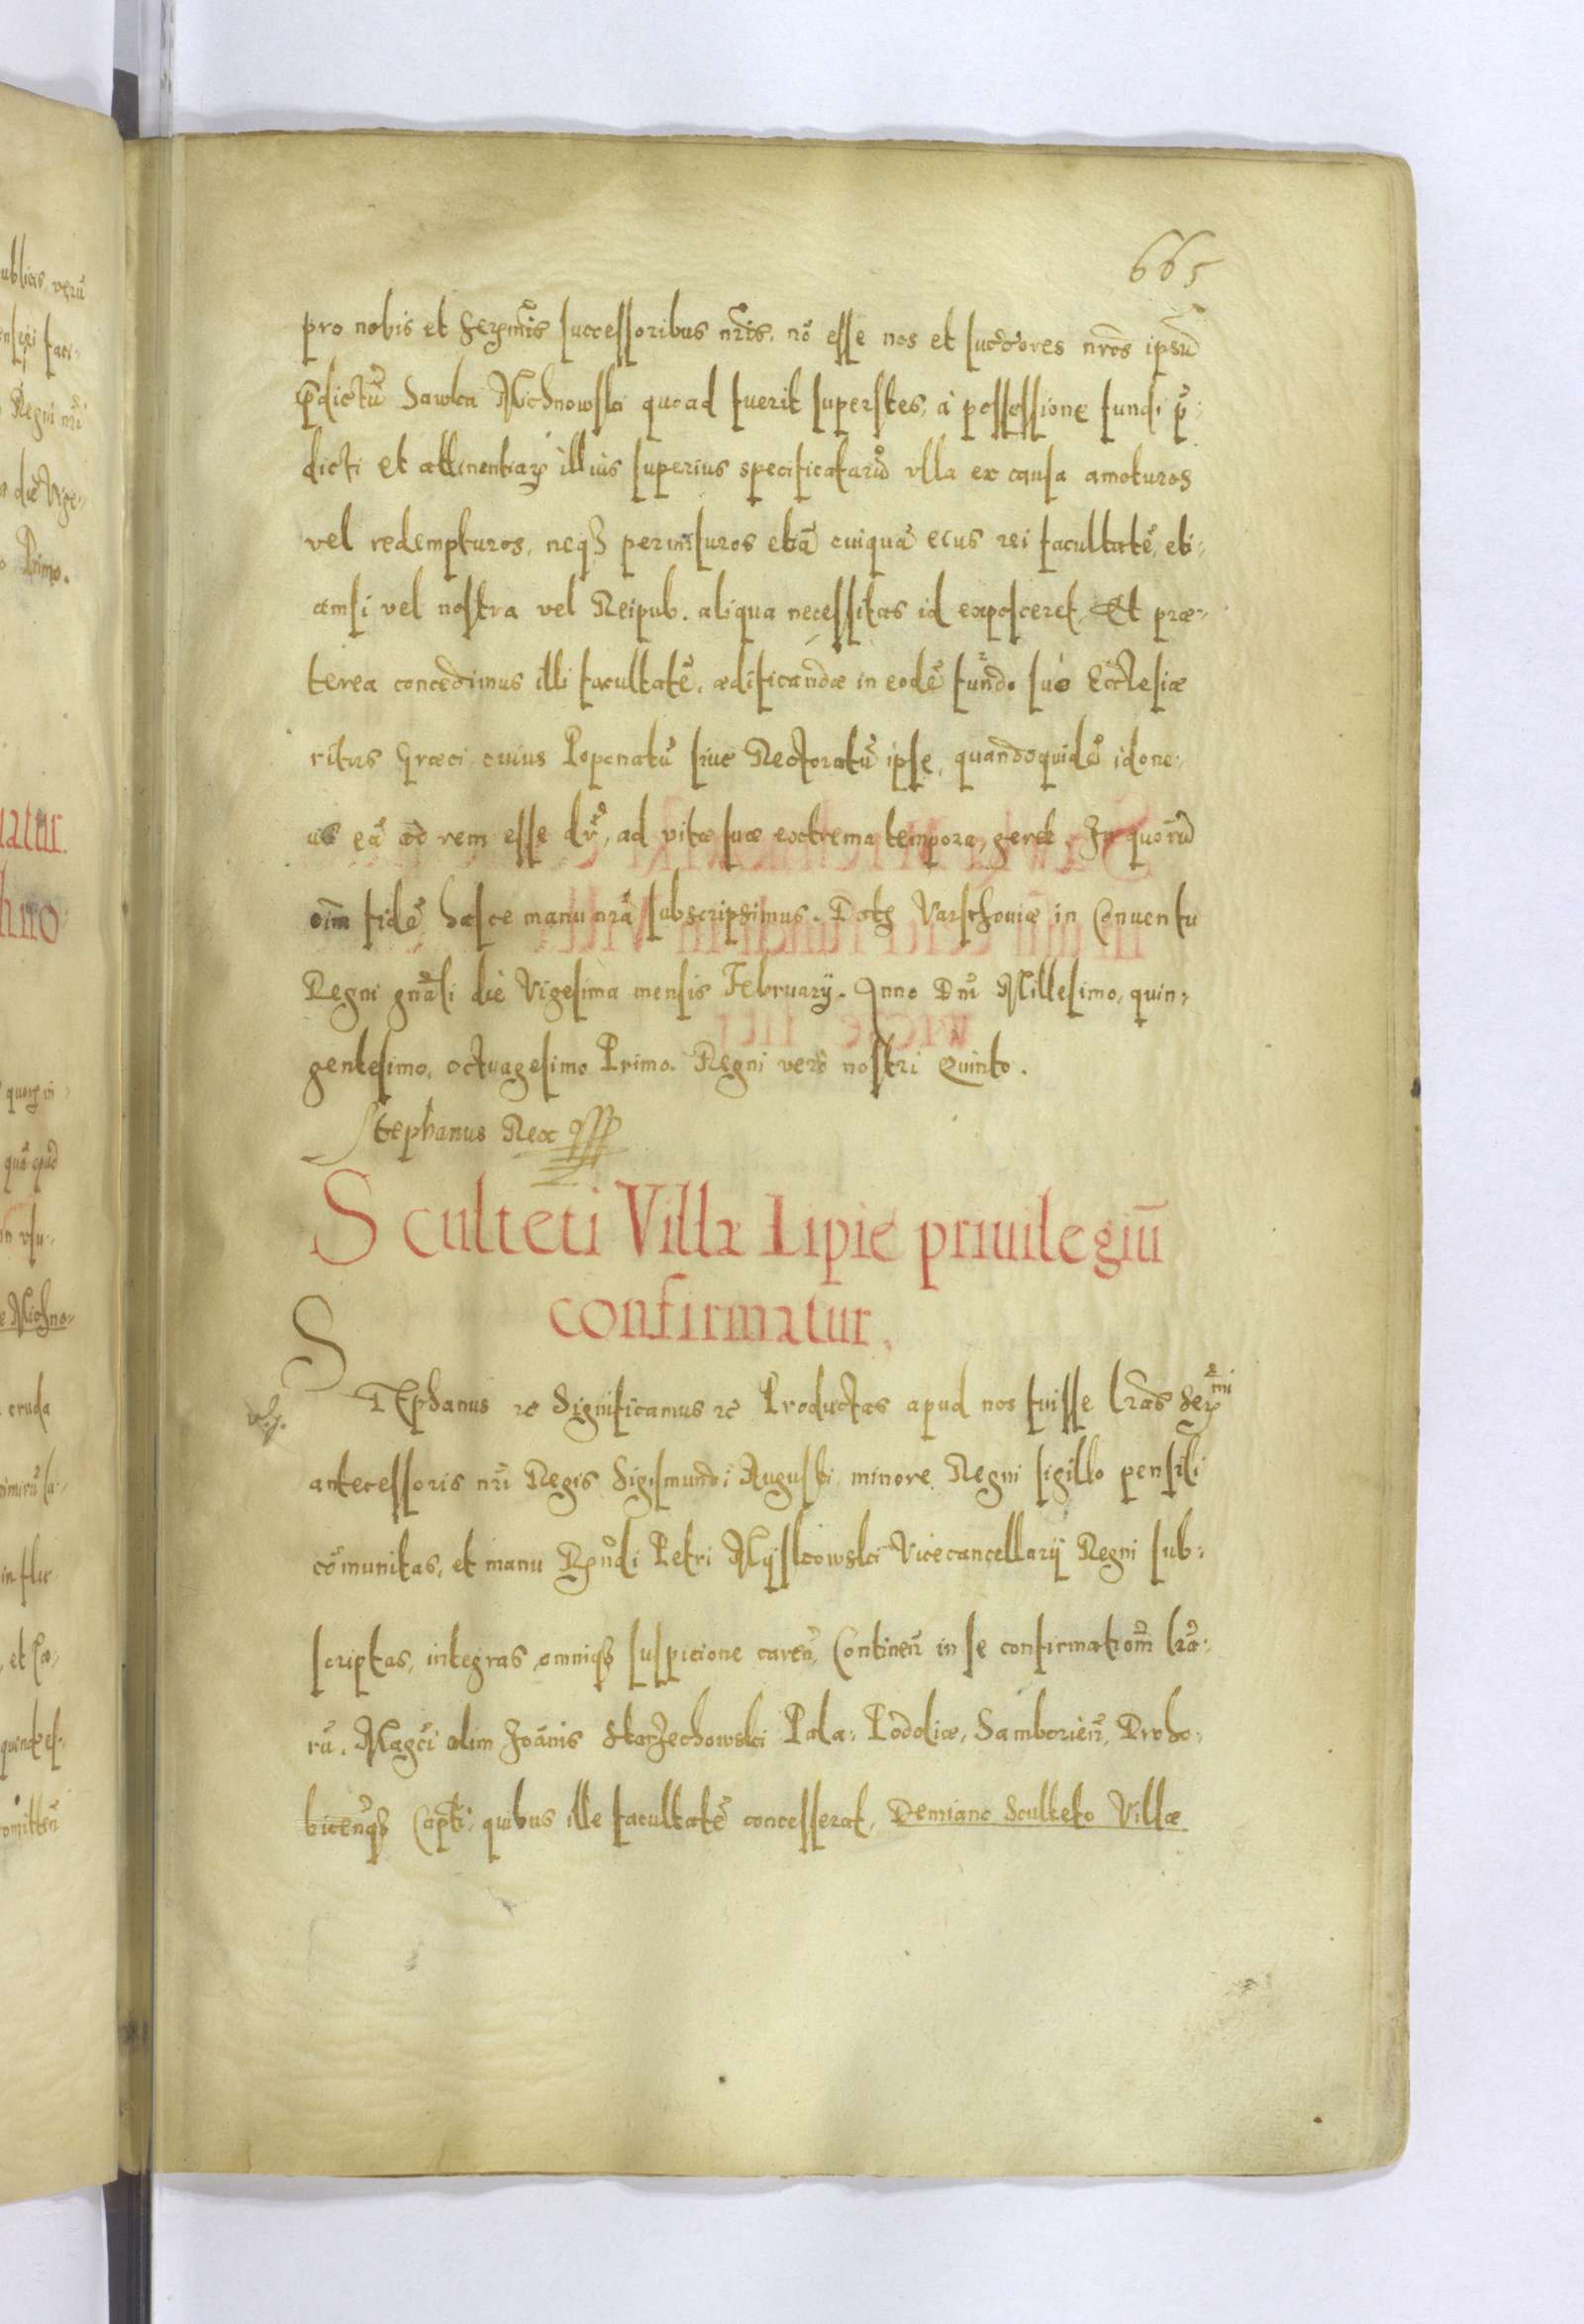 665
pro nobis et Ser̃mis successoribus nr̃is, nõ esse nos et succ̃ores nr̃os ipsũ
p̃dictũ Sawka Michnowski quoad fuerit superstes, à possessione fundi p̃:
dicti et attinentiaꝝ illius superius specificatarũ vlla ex causa amoturos
vel redempturos, neqꝫ permissuros etiã cuiquã eius rei facultatẽ, eti:
amsi vel nostra vel Reipub. aliqua necessitas id exposceret, Et præ:
terea concedimus illi facultatẽ, ædificandæ in eodẽ fundo suo Ecclesiæ
ritus Græci cuius Poponatũ siue Rectoratũ ipse, quandoquidẽ idone:
us eã ad rem esse dr̃, ad vitæ suæ extrema tempora, geret. In quorũ
oĩm fidẽ hasce manu nr̃a subscripsimus. Datꝫ Varschouiæ in Conuentu
Regni gñali die Vigesima mensis February. Anno Dñi Millesimo, quin:
gentesimo, octuagesimo Primo. Regni verò nostri Quinto.
Stephanus Rex
Sculteti Villæ Lipie priuilegiũ
confirmatur,
STEphanus ꝛc Significamus ꝛc Productas apud nos fuisse lr̃as Serᵐⁱ
antecessoris nr̃i Regis Sigismundi Augusti minore Regni sigillo pensili
cõmunitas, et manu Rñdi Petri Myszkowski Vicecancellarij Regni sub:
scriptas, integras omniqꝫ suspicione careñ, Continen̄ in se confirmatiom̃ lr̃a:
rũ, Magc̃i olim Joãnis Starzechowski Pala: Podoliæ, Samborieñ, Droho:
bicenq̃ꝫ Capt̃i, quibus ille facultatẽ concesserat, Demiano Sculteto Villæ